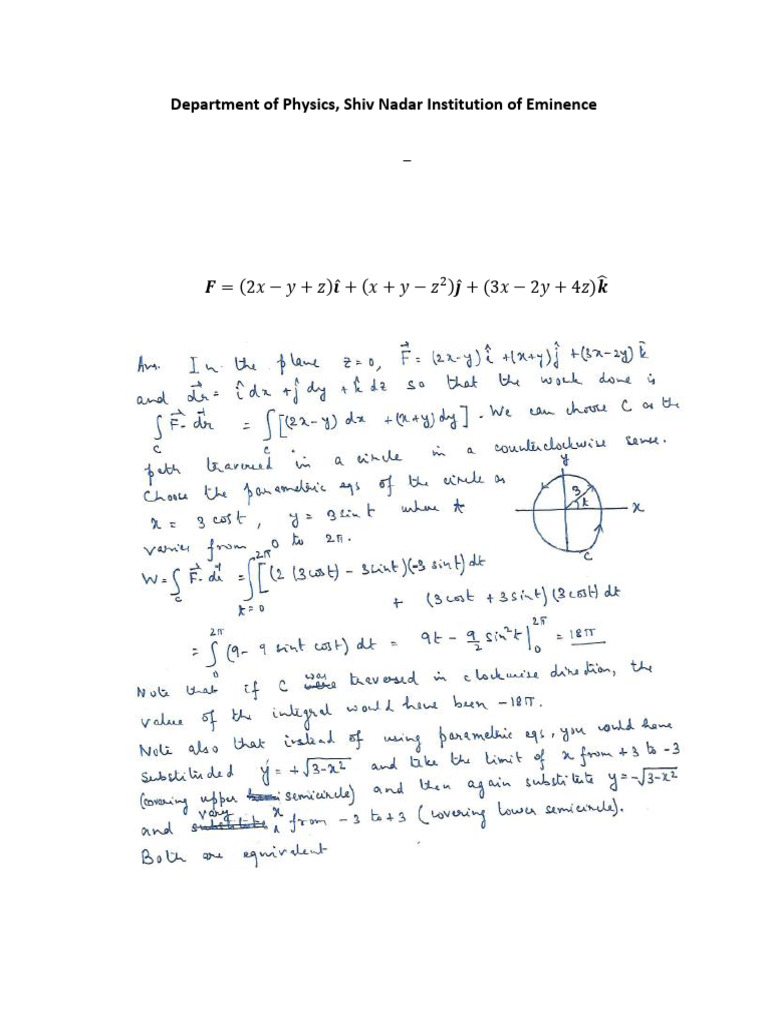 Department of Physics, Shiv Nadar Institution of Eminence
–
F = (2x − y + z)î + (x + y − z²)ĵ + (3x − 2y + 4z)k̂
Ans. In the plane z=0, F⃗ = (2x-y) î +(x+y)ĵ +(3x-2y) k̂
and dr⃗ = î dx + ĵ dy + k̂ dz so that the work done is
∫_C F⃗. dr⃗ = ∫_C [(2x-y) dx +(x+y) dy]. We can choose C as the
path traversed in a circle in a counterclockwise sense.
Choose the parametric eqs of the circle as
x = 3 cost, y = 3 sint where t
varies from 0 to 2π.
y
3
t
x
C
W = ∫_C F⃗. dr⃗ = ∫_{t=0}^{2π} [(2 (3cost) - 3sint)(-3 sint) dt
+ (3cost + 3sint)(3cost) dt
= ∫_0^{2π} (9- 9 sint cost) dt = 9t - 9/2 sin²t |_0^{2π} = 18π
Note that if C was traversed in clockwise direction, the
value of the integral would have been -18π.
Note also that instead of using parametric eqs, you would have
substituted y = +√3-x² and take the limit of x from +3 to -3
(covering upper semicircle) and then again substitute y=-√3-x²
and vary x from -3 to +3 (covering lower semicircle).
Both are equivalent